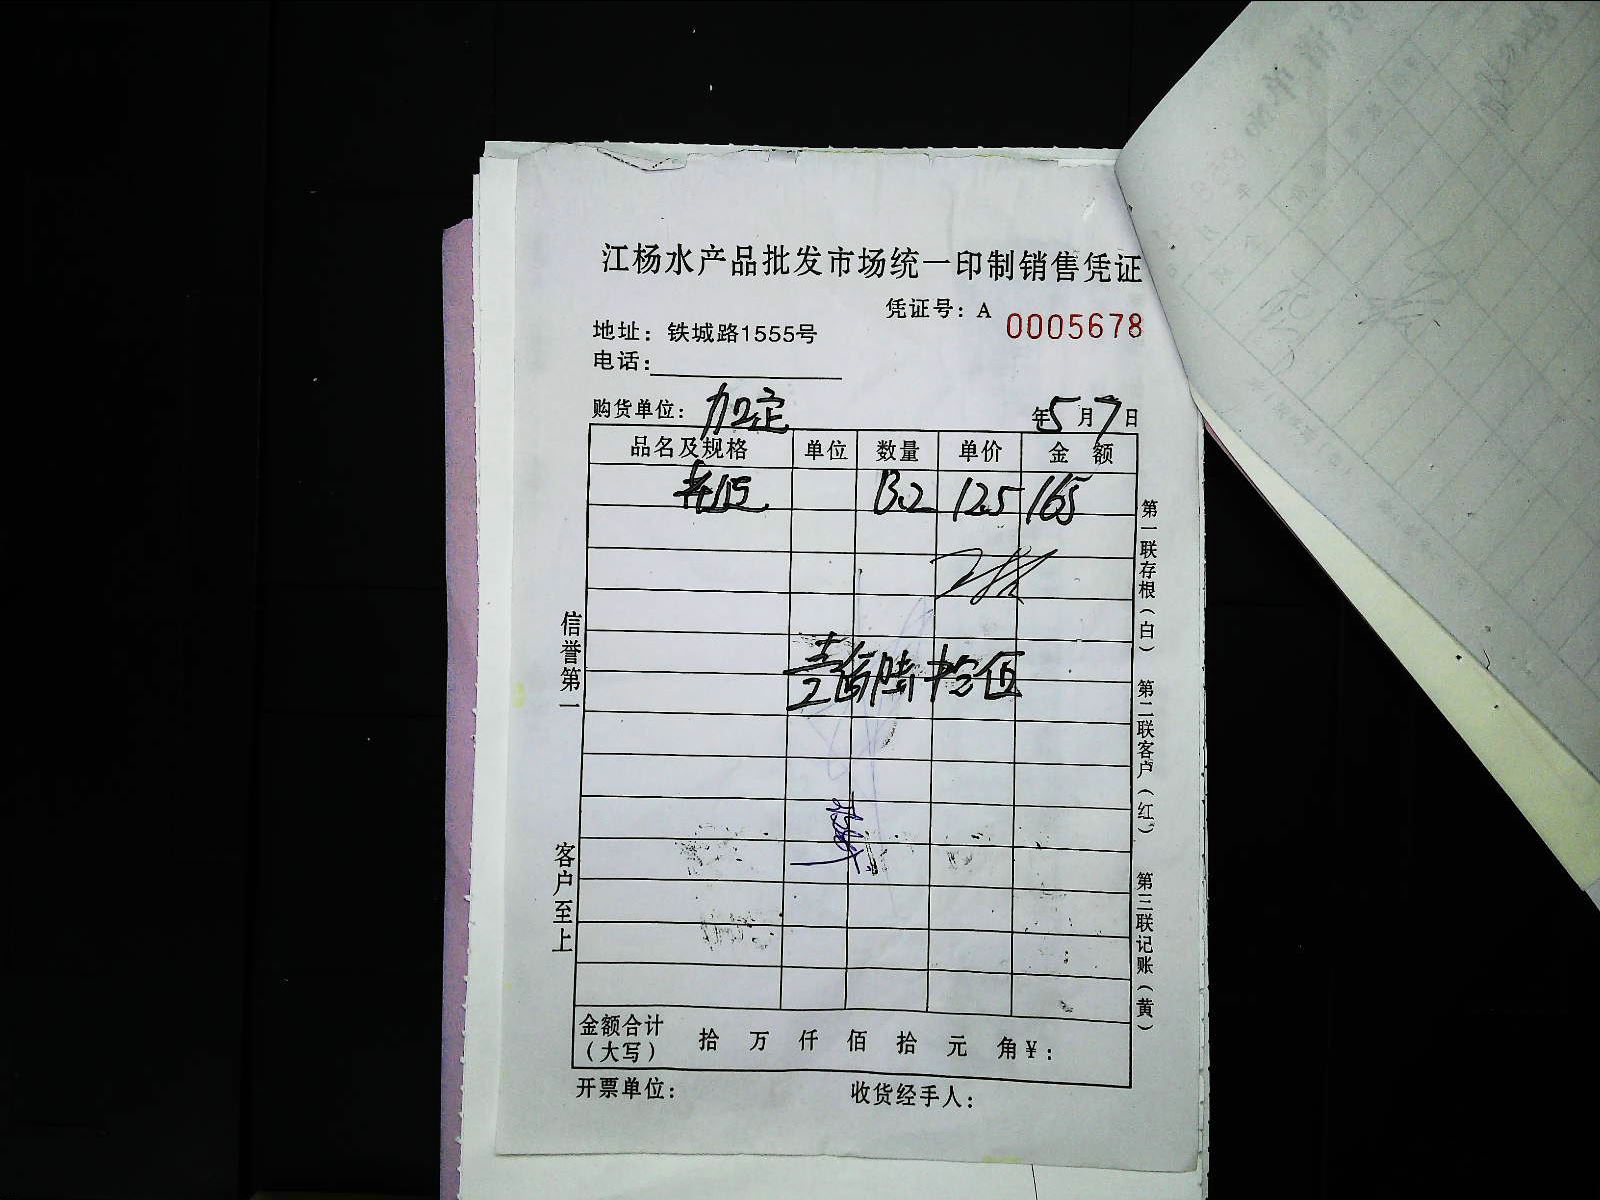 江杨水产品批发市场统一印制销售凭证
凭证号：A 0005678
地址：铁城路1555号
电话：
购货单位：加定
年5月7日
品名及规格 单位 数量 单价 金额
13.2 12.5 165
壹佰陆拾伍
信誉第一
客户至上
第一联存根（白） 第二联客户（红） 第三联记账（黄）
金额合计（大写） 拾 万 仟 佰 拾 元 角 ¥：
开票单位： 收货经手人：